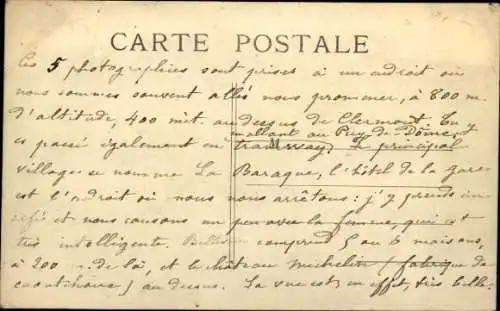 CARTE POSTALE
Ces 5 photographies sont prises à un endroit où
nous sommes souvent allés nous promener, à 800 m.
d'altitude, 400 mèt. au dessus de Clermont. On y
allant au Puy de Dôme, et
est passé également en tramway. Le principal
village se nomme La Baraque, l'hôtel de la gare
est l'endroit où nous nous arrêtons : j'y prends un
café et nous causons un peu avec la femme, qui est
très intelligente. comprend 5 ou 6 maisons,
à 200 m. de là, et le château Michelin (fabrique de
caoutchouc) au dessus. La vue est, en effet, très belle.